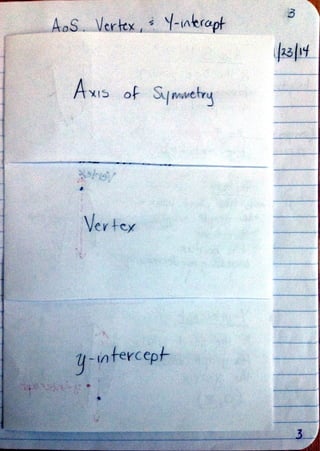 3
AoS, Vertex, & Y-intercept
/23/14
Axis of Symmetry
Vertex
y-intercept
3